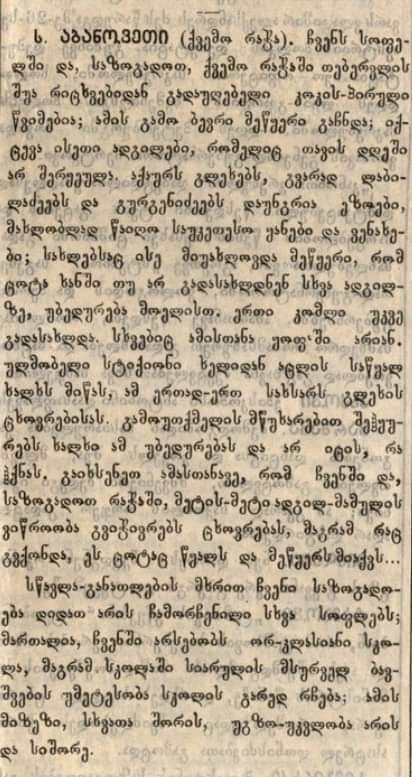 ს. აბანოეთი (ქვემო რაჭა). ჩვენს სოფე-
ლში და, საზოგადოთ, ქვემო რაჭაში თებერვლის
შუა რიცხვებიდან გადაუღებელი კოკის-პირული
წვიმებია; ამის გამო ბევრი მეწყერი გაჩნდა; იქ-
ცევა ისეთი ადგილები, რომელიც თავის დღეში
არ შერყეულა. აქაურ გლეხებს, გვარად ლაბი-
ლაძეებს და გურგენიძეებს დაუნგრია ეზოები,
მახლობლად წაიღო საუკეთესო ყანები და ვენახე-
ბი; სახლებსაც ისე მიუახლოვდა მეწყერი, რომ
ცოტა ხანში თუ არ გადასახლდნენ სხვა ადგილ-
ზე, უბედურება მოელისთ. ერთი კომლი უკვე
გადასახლდა. სხვებიც ამისთანა ყოფ'ში არიან.
ულმობელი სტიქიონი ხელიდან აცლის საწყალ
ხალხს მიწას, ამ ერთად-ერთ სახსარს გლეხის
ცხოვრებისას. გამოუთქმელის მწუხარებით შეჰყუ-
რებს ხალხი ამ უბედურებას და არ იცის, რა
ჰქნას. გაიხსენეთ ამასთანავე, რომ ჩვენში და,
საზოგადოთ რაჭაში, მეტის-მეტი ადგილ-მამულის
ვიწროობა გვიჭივრებს ცხოვრებას, მაგრამ რაც
გვქონდა, ეს ცოტაც წყალს და მეწყერს მიაქვს...
სწავლა-განათლების მხრით ჩვენი საზოგადო-
ება დიდათ არის ჩამორჩენილი სხვა სოფლებს;
მართალია, ჩვენში არსებობს ორ-კლასიანი სკო-
ლა, მაგრამ სკოლაში სიარულის მსურველ ბავ-
შვების უმეტესობა სკოლის გარედ რჩება; ამის
მიზეზი, სხვათა შორის, უგზო-უკვლობა არის
და სიშორე.